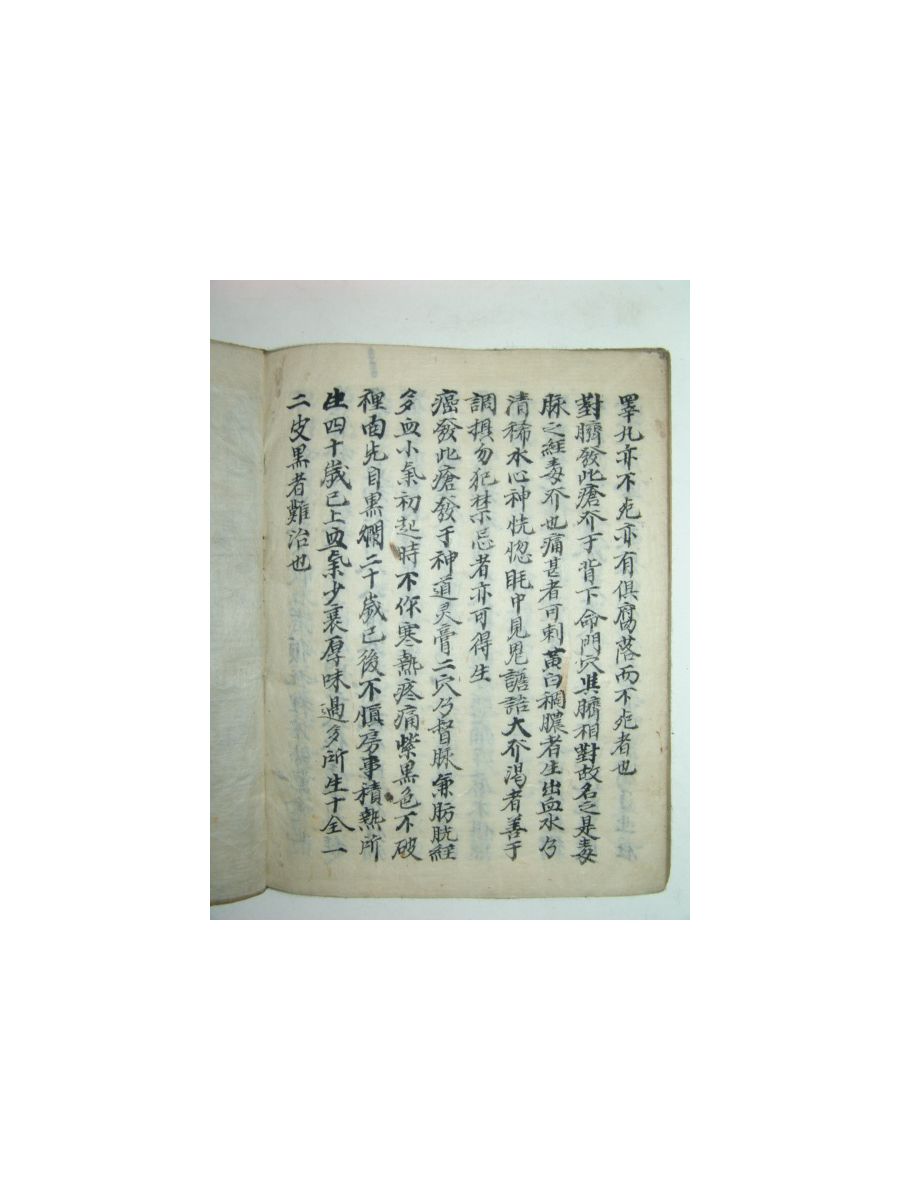 睪丸亦不死亦有俱腐落而不死者也
對臍發此瘡介于背下命門穴與臍相對故名之是毒
脉之經毒介也痛甚者可刺黃白稠膿者生出血水乃
清稀水心神恍惚眊中見鬼譫語大介渴者善于
調摂勿犯禁忌者亦可得生
癌發此瘡發于神道灵膏二穴乃督脉兼肪胱經
多血小氣初起時不作寒熱疼痛紫黒色不破
裡面先自黒爛二十歲已後不慎房事積熱所
生四十歲已上血氣少衰厚味過多所生十全一
二皮黒者難治也